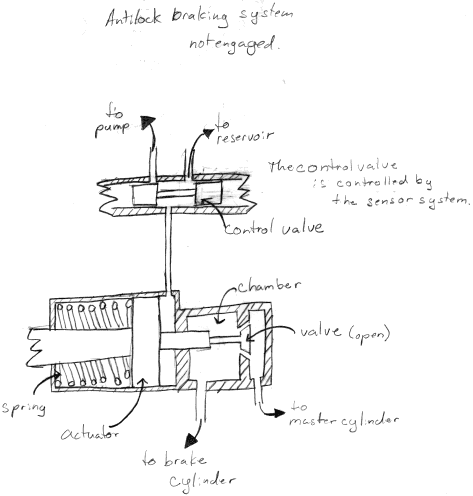 Antilock braking system
not engaged.
to
pump
to
reservoir
The control valve
is controlled by
the sensor system.
control valve
chamber
valve (open)
spring
actuator
to
master cylinder
to brake
cylinder